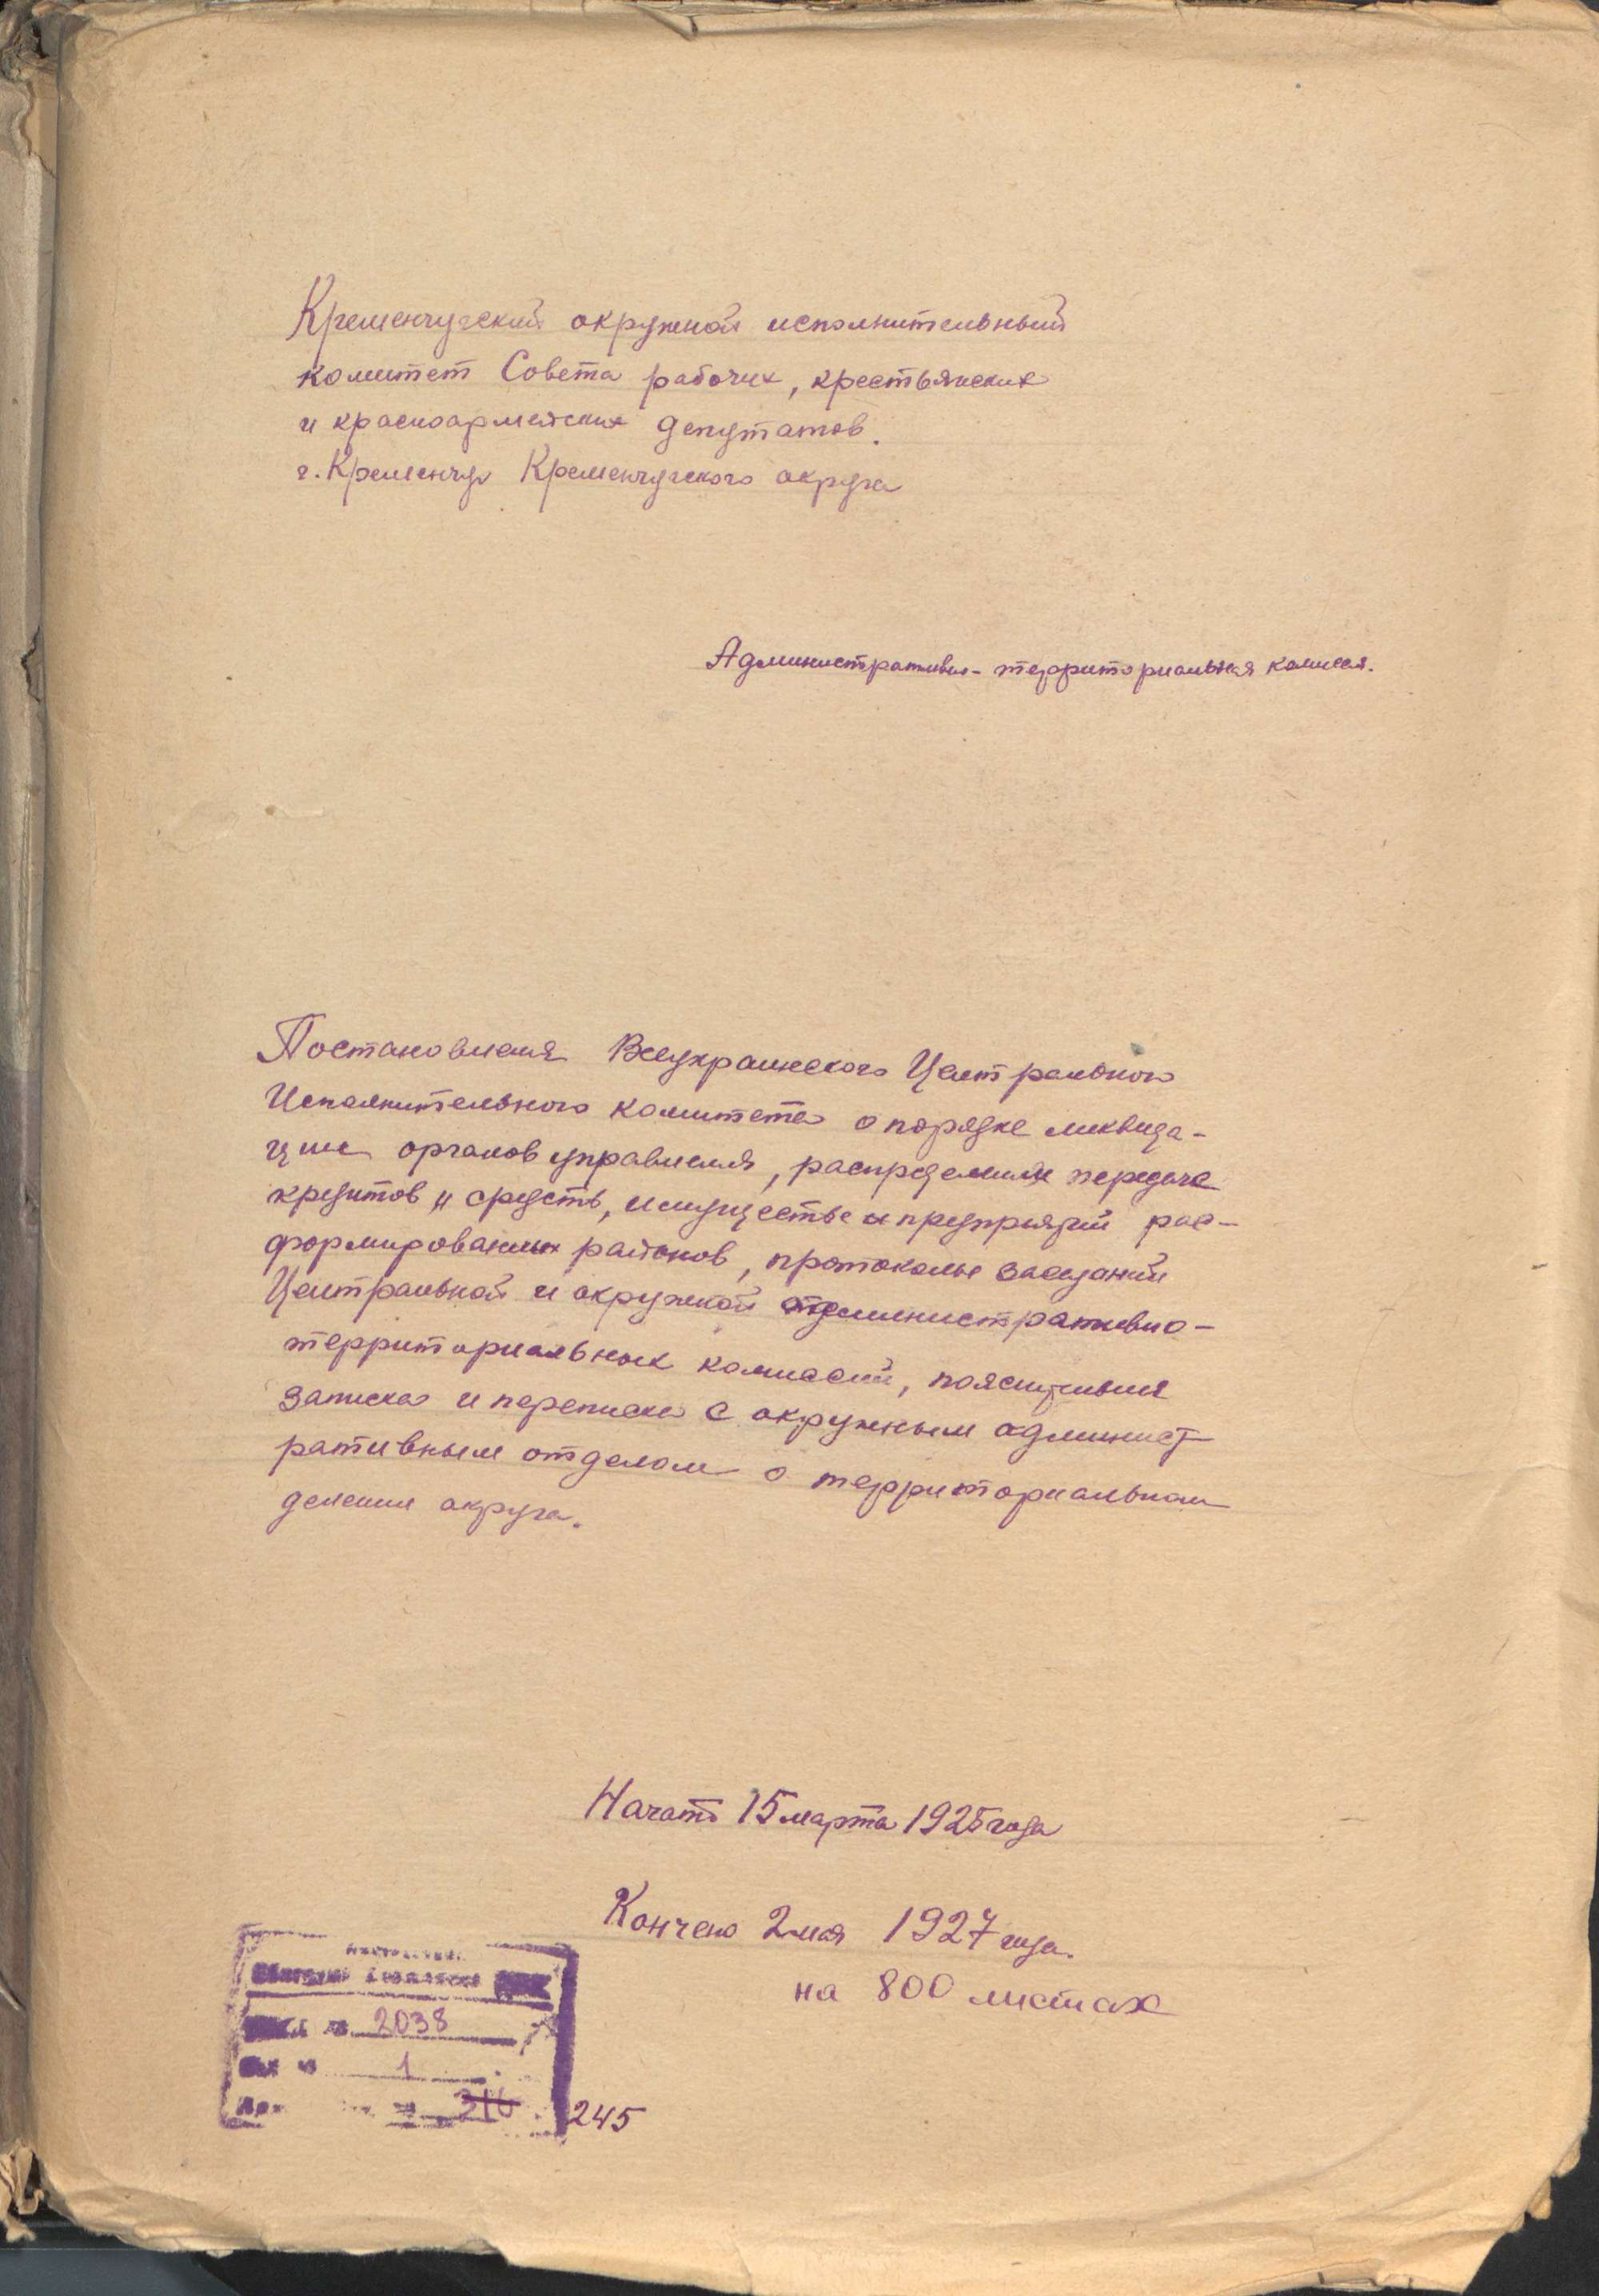 Кременчугский окружной исполнительный
комитет Совета рабочих, крестьянских
и красноармейских депутатов.
г. Кременчуг Кременчугского округа
Административно-территориальная комиссия.
Постановления Всеукраинского Центрального
Исполнительного комитета о порядке ликвида-
ции органов управления, распределении передаче
кредитов и средств, имущества и предприятий рас-
формированных районов, протоколы заседаний
Центральной и окружной административно-
территориальных комиссий, пояснительная
записка и переписка с окружным админист
ративным отделом о территориальном
делении округа.
Начато 15 марта 1925 года
Кончено 2 мая 1927 года.
на 800 листах
2038
1
316
245